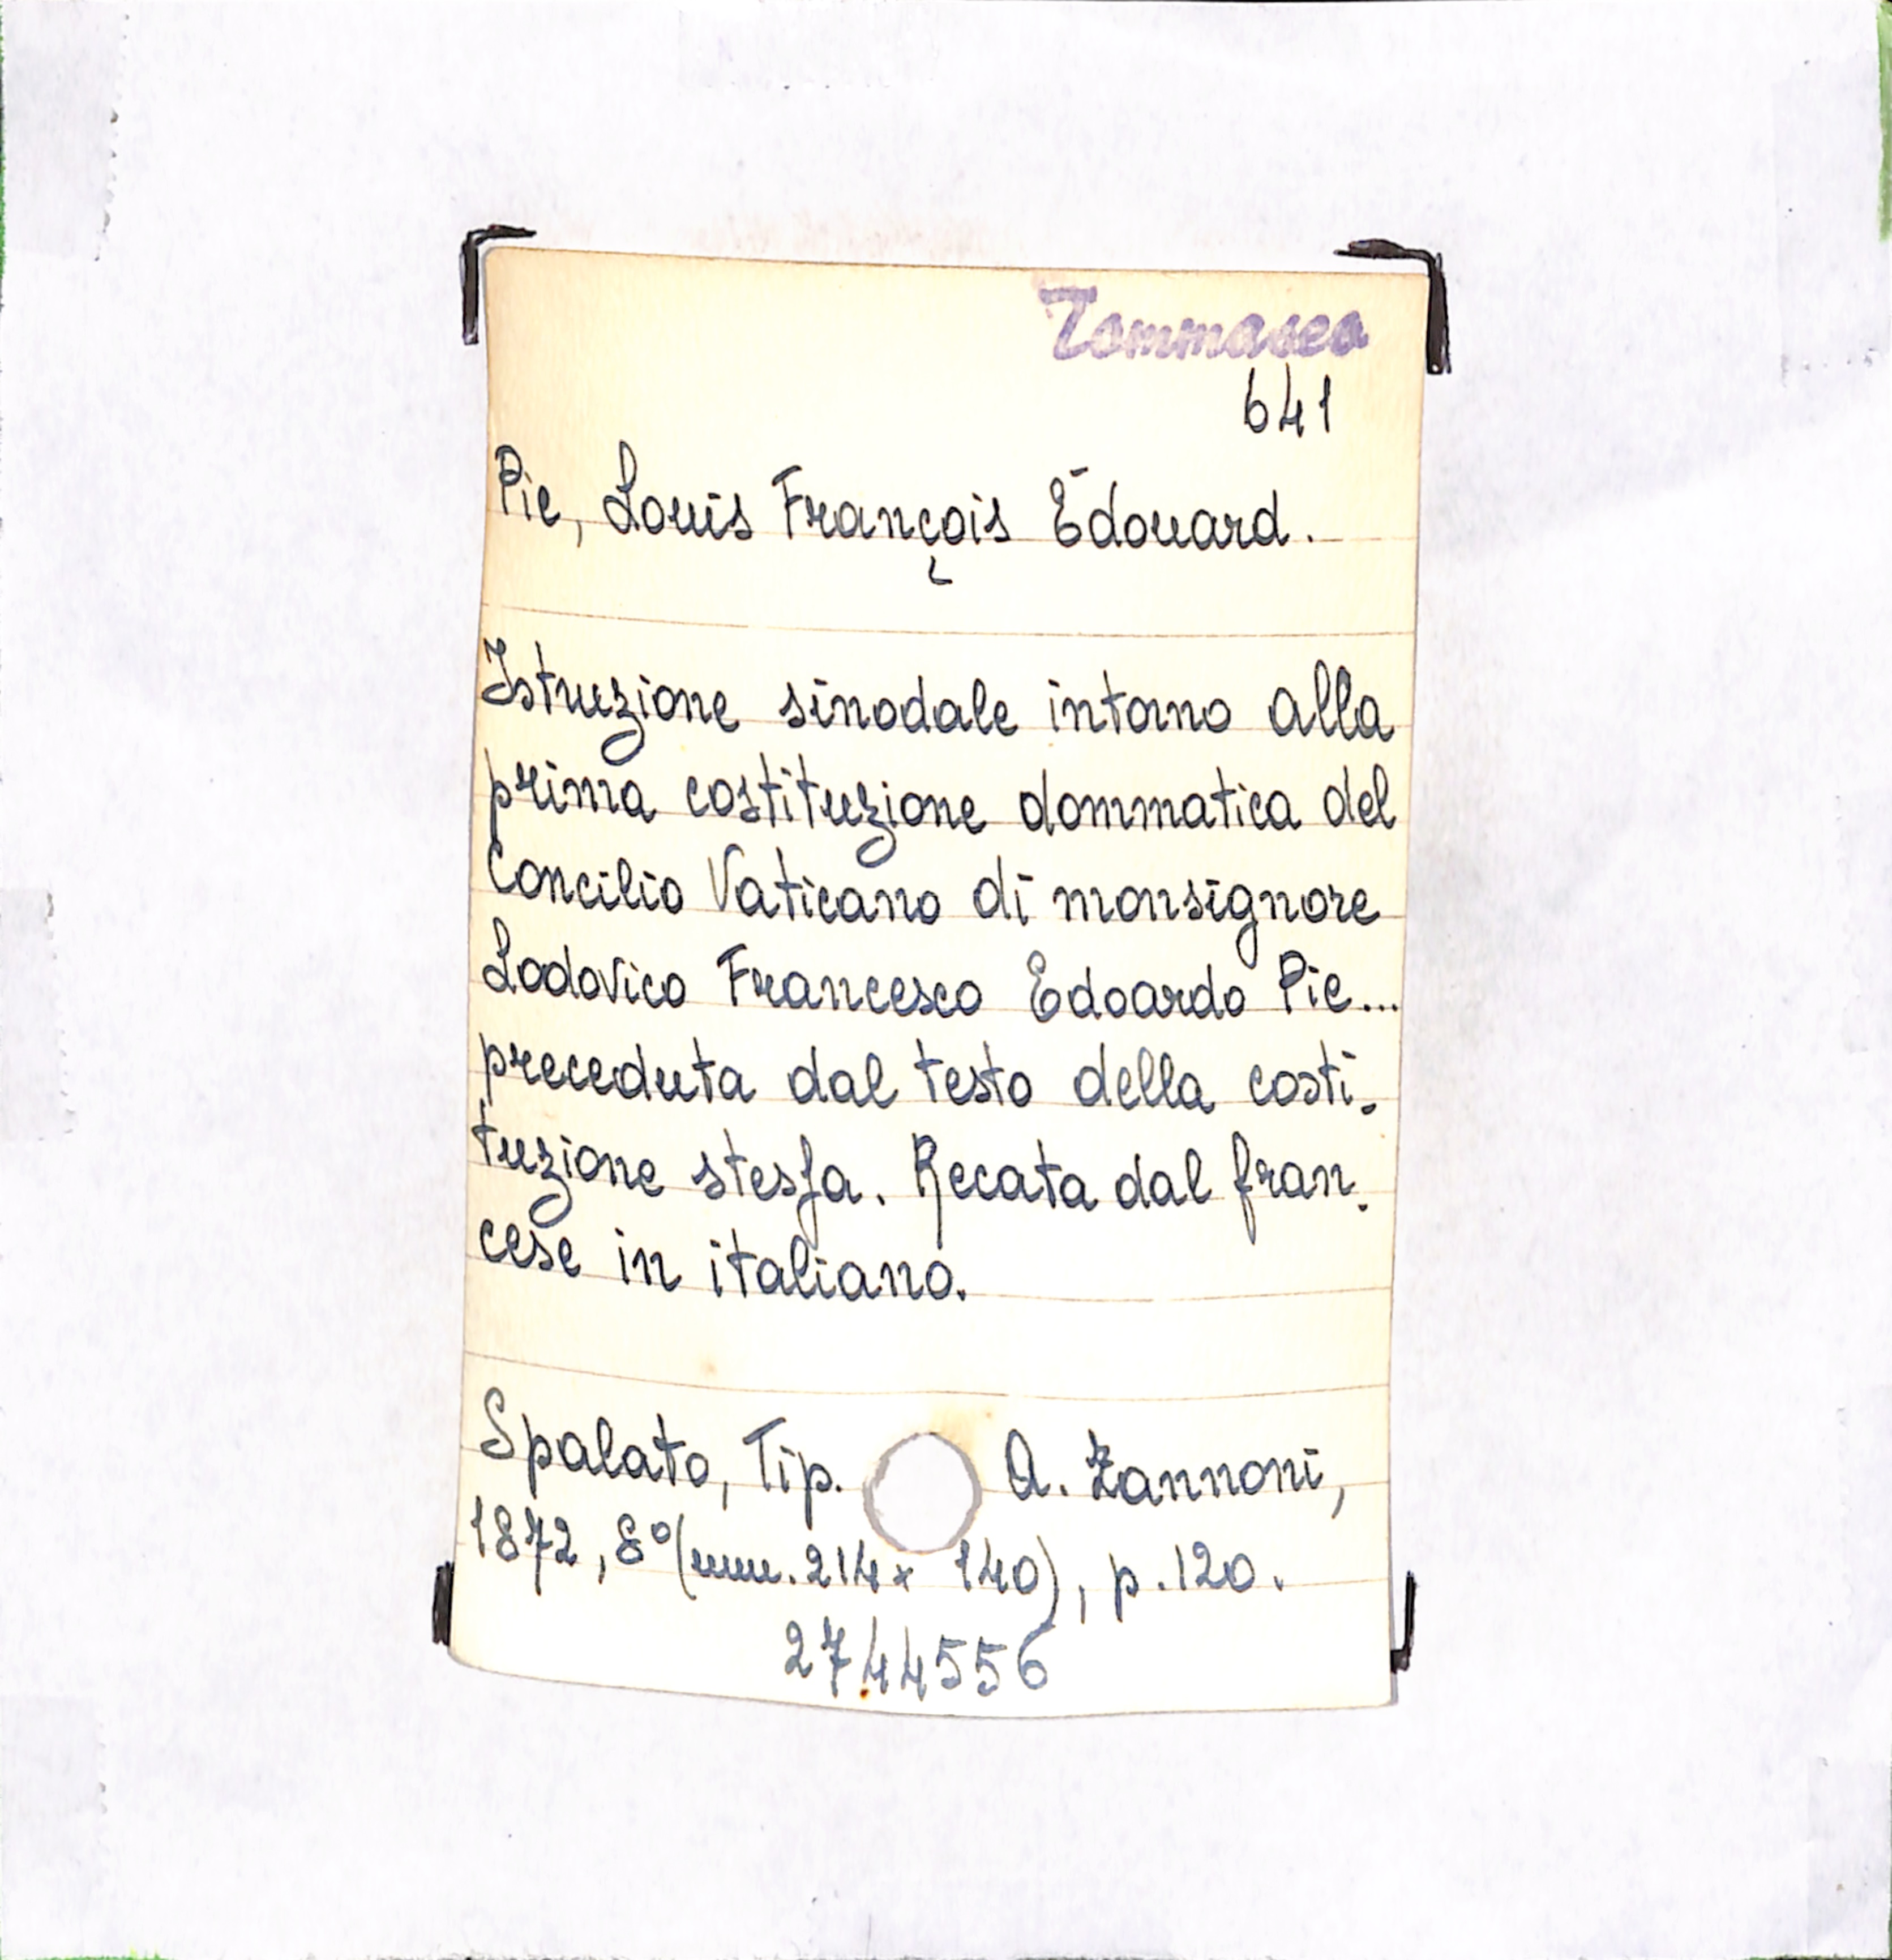 Tommaseo
641
Pie, Louis François Édouard.
Istruzione sinodale intorno alla
prima costituzione dommatica del
Concilio Vaticano di monsignore
Lodovico Francesco Edoardo Pie...
preceduta dal testo della costi-
tuzione stessa. Recata dal fran-
cese in italiano.
Spalato, Tip. A. Zannoni,
1872, 8°(mm. 214x 140), p. 120.
2744556